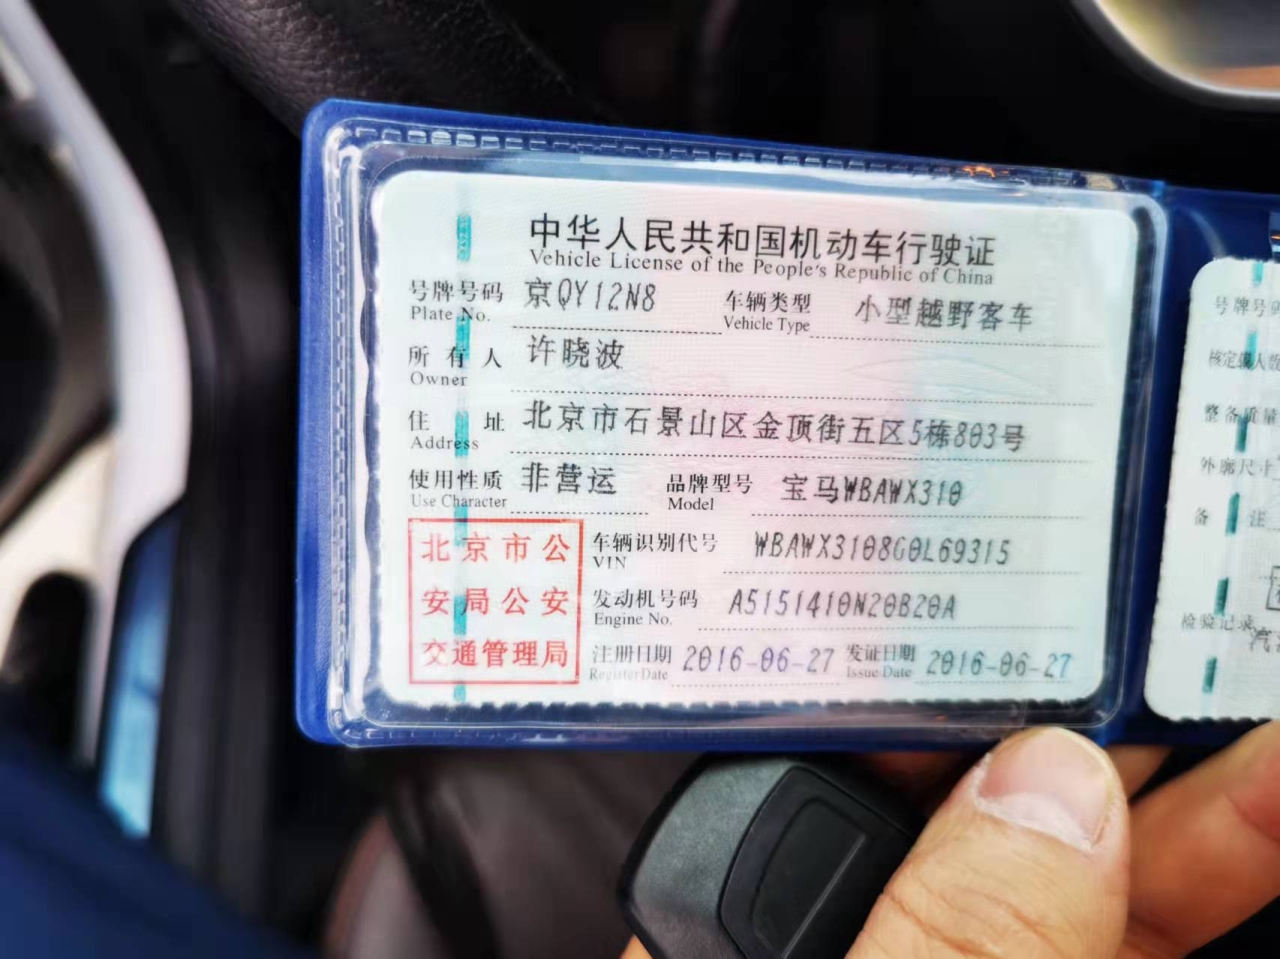 中华人民共和国机动车行驶证
Vehicle License of the People's Republic of China
号牌号码 京QY12N8 车辆类型 小型越野客车
Plate No. Vehicle Type
所有人 许晓波
Owner
住址 北京市石景山区金顶街五区5栋803号
Address
使用性质 非营运 品牌型号 宝马WBAWX310
Use Character Model
北京市公
安局公安
交通管理局
车辆识别代号 WBAWX3108G0L69315
VIN
发动机号码 A5151410N20B20A
Engine No.
注册日期 2016-06-27 发证日期 2016-06-27
Register Date Issue Date
号牌号码
核定载人数
整备质量
外廓尺寸
备注
检验记录